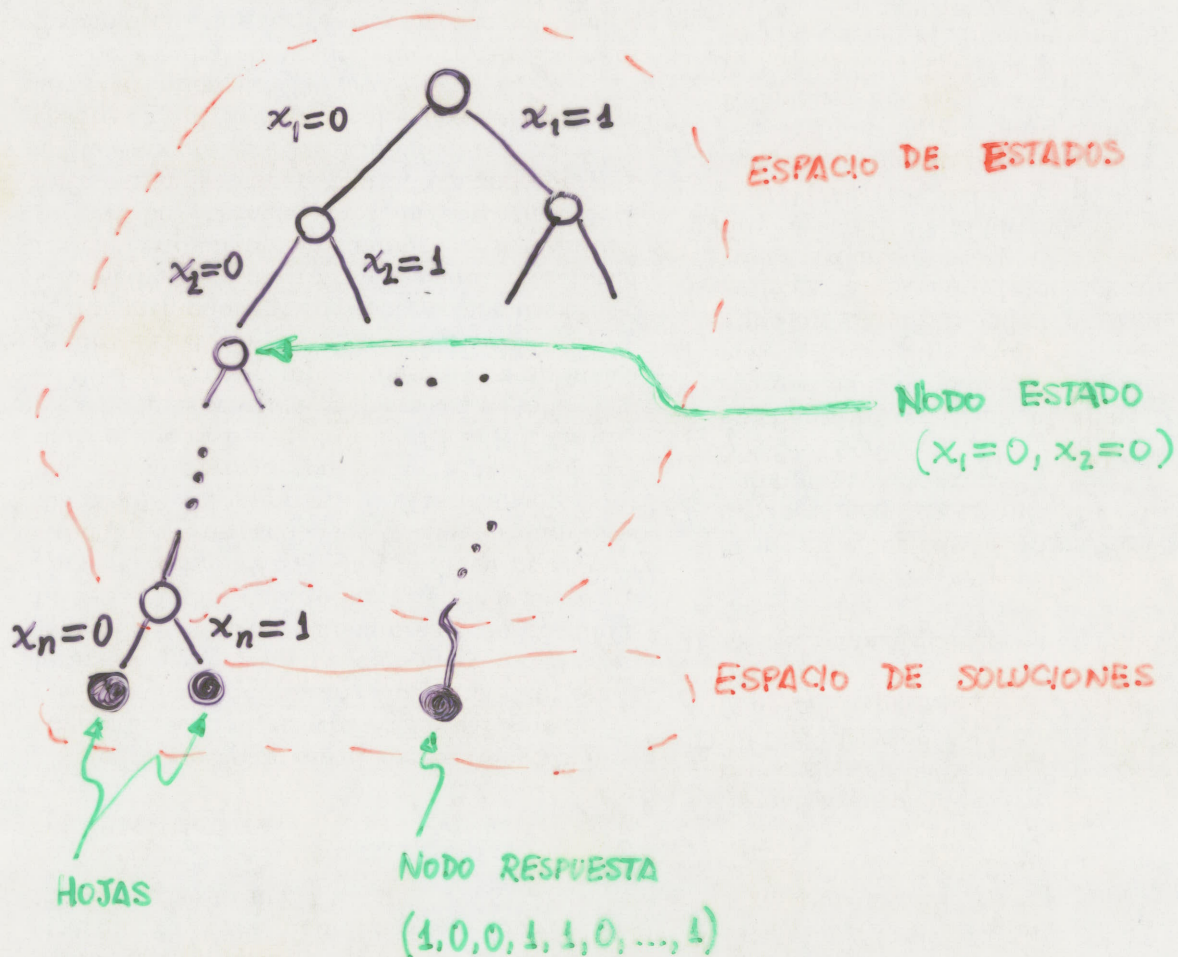 x₁=0
x₁=1
ESPACIO DE ESTADOS
x₂=0
x₂=1
...
NODO ESTADO
(x₁=0, x₂=0)
xₙ=0
xₙ=1
ESPACIO DE SOLUCIONES
HOJAS
NODO RESPUESTA
(1,0,0,1,1,0,...,1)